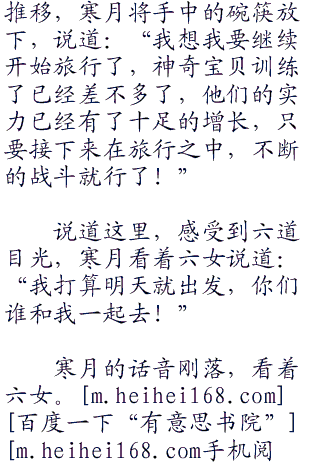 推移，寒月将手中的碗筷放
下，说道：“我想我要继续
开始旅行了，神奇宝贝训练
了已经差不多了，他们的实
力已经有了十足的增长，只
要接下来在旅行之中，不断
的战斗就行了！”
说道这里，感受到六道
目光，寒月看着六女说道：
“我打算明天就出发，你们
谁和我一起去！”
寒月的话音刚落，看着
六女。[m.heihei168.com]
[百度一下“有意思书院”]
[m.heihei168.com手机阅